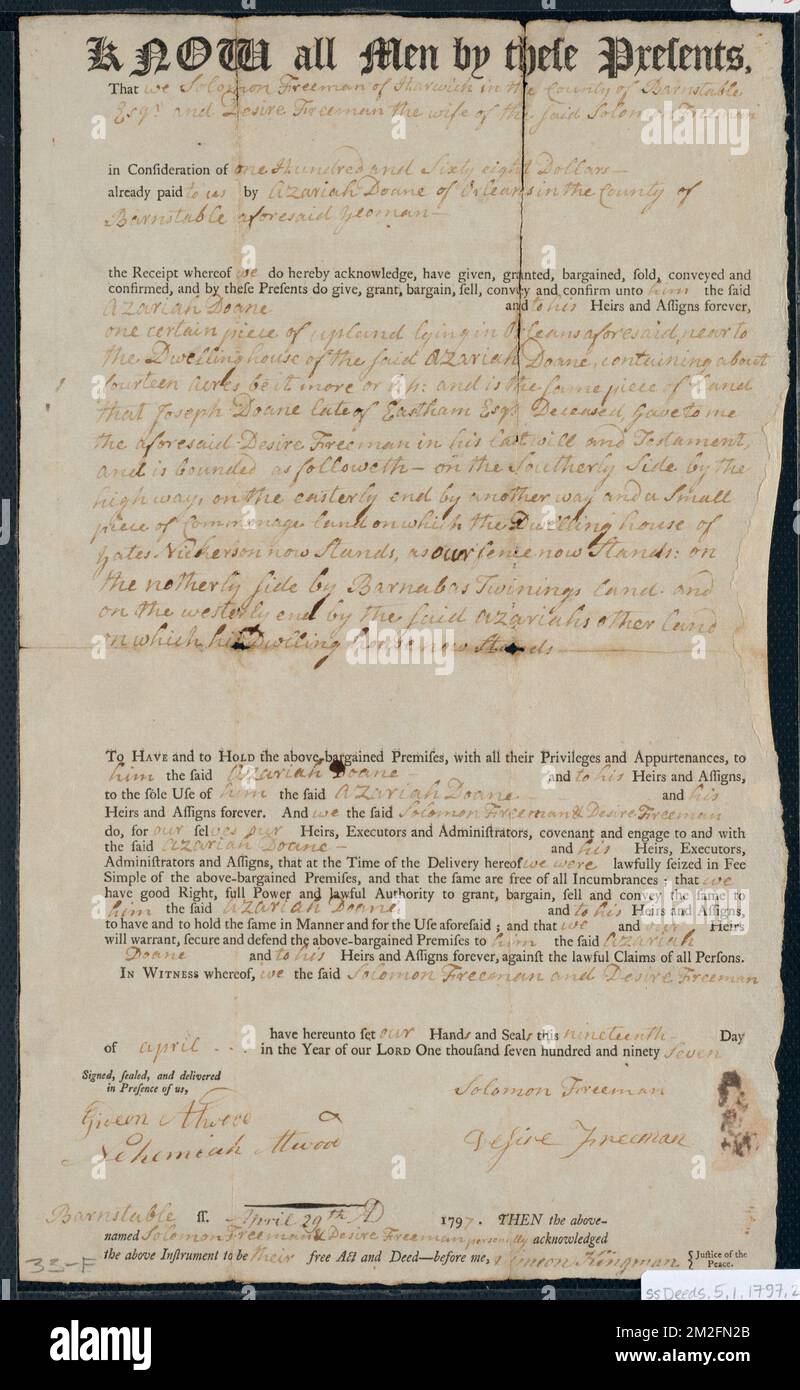 KNOW all Men by theſe Preſents,
That we Solomon Freeman of Harwich in the County of Barnstable
Esqr. and Desire Freeman the wife of the said Solomon Freeman
in Conſideration of one Hundred and Sixty eight Dollars—
already paid to us by Azariah Doane of Orleans in the County of
Barnstable aforesaid yeoman—
the Receipt whereof we do hereby acknowledge, have given, granted, bargained, ſold, conveyed and
confirmed, and by theſe Preſents do give, grant, bargain, ſell, convey and confirm unto him the ſaid
Azariah Doane and to his Heirs and Aſſigns forever,
one certain piece of upland lying in Orleans aforesaid, near to
the Dwelling house of the said Azariah Doane, containing about
fourteen acres be it more or less: and is the same piece of Land
that Joseph Doane late of Eastham Esqr. Deceased, gave to me
the aforesaid Desire Freeman in his last will and Testament,
and is bounded as followeth— on the Southerly Side by the
high way, on the easterly end by another way and a Small
piece of Commonage land on which the Dwelling house of
Yates Nickerson now Stands, as our fence now Stands: on
the northerly side by Barnabas Twinings land and
on the westerly end by the said azariahs other land
on which his Dwelling house now Stands
To Have and to Hold the above-bargained Premiſes, with all their Privileges and Appurtenances, to
him the ſaid Azariah Doane— and to his Heirs and Aſſigns,
to the ſole Uſe of him the ſaid Azariah Doane and his
Heirs and Aſſigns forever. And we the ſaid Solomon Freeman & Desire Freeman
do, for our ſelves our Heirs, Executors and Adminiſtrators, covenant and engage to and with
the ſaid Azariah Doane— and his Heirs, Executors,
Adminiſtrators and Aſſigns, that at the Time of the Delivery hereof we were lawfully ſeized in Fee
Simple of the above-bargained Premiſes, and that the ſame are free of all Incumbrances; that we
have good Right, full Power and lawful Authority to grant, bargain, ſell and convey the ſame to
him the ſaid Azariah Doane and to his Heirs and Aſſigns,
to have and to hold the ſame in Manner and for the Uſe aforeſaid; and that we and our Heirs
will warrant, secure and defend the above-bargained Premiſes to him the ſaid Azariah
Doane and to his Heirs and Aſſigns forever, againſt the lawful Claims of all Perſons.
In Witness whereof, we the ſaid Solomon Freeman and Desire Freeman
have hereunto ſet our Hands and Seals this nineteenth Day
of april in the Year of our Lord One thouſand ſeven hundred and ninety Seven
Signed, ſealed, and delivered
in Preſence of us,
Solomon Freeman
Gideon Atwood
Nehemiah Atwood
Desire Freeman
Barnstable ſſ. April 29th AD 1797. THEN the above-
named Solomon Freeman & Desire Freeman personally acknowledged
the above Inſtrument to be their free Act and Deed—before me, Simeon Kingman { Juſtice of the
Peace.
33-F
ssDeeds.5.1.1797.2
alamy
alamy
Image ID: 2M2FN2B
www.alamy.com